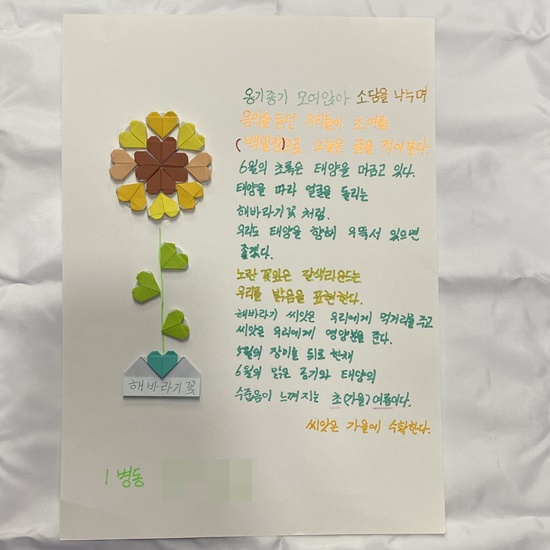 옹기종기 모여앉아 소담을 나누며
음악을 들으면 우리들이 초여름
(백일장)으로 오늘은 글을 적어본다.
6월의 초록은 태양을 머금고 있다.
태양을 따라 얼굴을 돌리는
해바라기꽃 처럼.
우리도 태양을 향해 우뚝서 있으면
좋겠다.
노란 꽃잎은 갈색라운드는
우리를 밝음을 표현한다.
해바라기 씨앗은 우리에게 먹거리를 주고
씨앗은 우리에게 영양분을 준다.
5월의 장미를 뒤로 한채
6월의 맑은 공기와 태양의
수줍음이 느껴지는 초(가을)여름이다.
씨앗은 가을에 수확한다.
해바라기꽃
1 병동